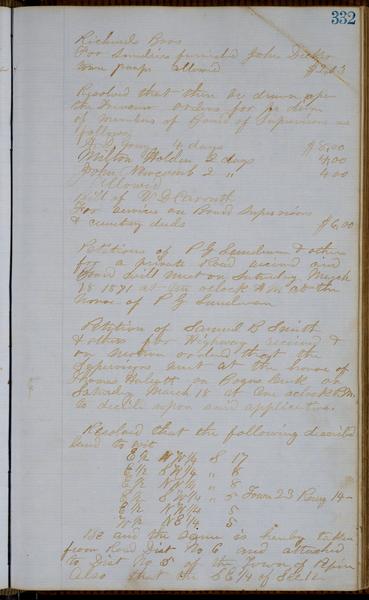 332
Richards Bros
For Sundries furnished John
town paups allowed $2.63
Resolved that there be drawn upon
the Treasurer orders for per diem
of members of Board of Supervisors as
follows
4 days $8.00
Milton Holden 2 days 4.00
John Newcomb 2 " 4.00
Allowed
Bill of V D Carruth
For Services on Board Supervisors
& cemetery deeds $6.00
Petitions of P G & others
for a private Road received and
Board will meet on Saturday March
18 1871 at o'clock A M at the
house of P G
Petition of Samuel B Smith
& others for Highway received &
on motion ordered that the
Supervisors meet at the house of
Thomas on Bogus Creek on
Saturday March 18 at One oclock P.M.
to decide upon said application.
Resolved that the following described
land to wit
E½ NW¼ S 17
E½ SW¼ " 8
E½ NW¼ " 8
E½ SW¼ " 5 Town 23 Rang 14
E½ NW¼ 5
W½ NE¼ 5
be and the same is hereby taken
from Road Dist No 6 and attached
to Dist No 5 of the town of Pepin
Also that the SE¼ of Sec 12